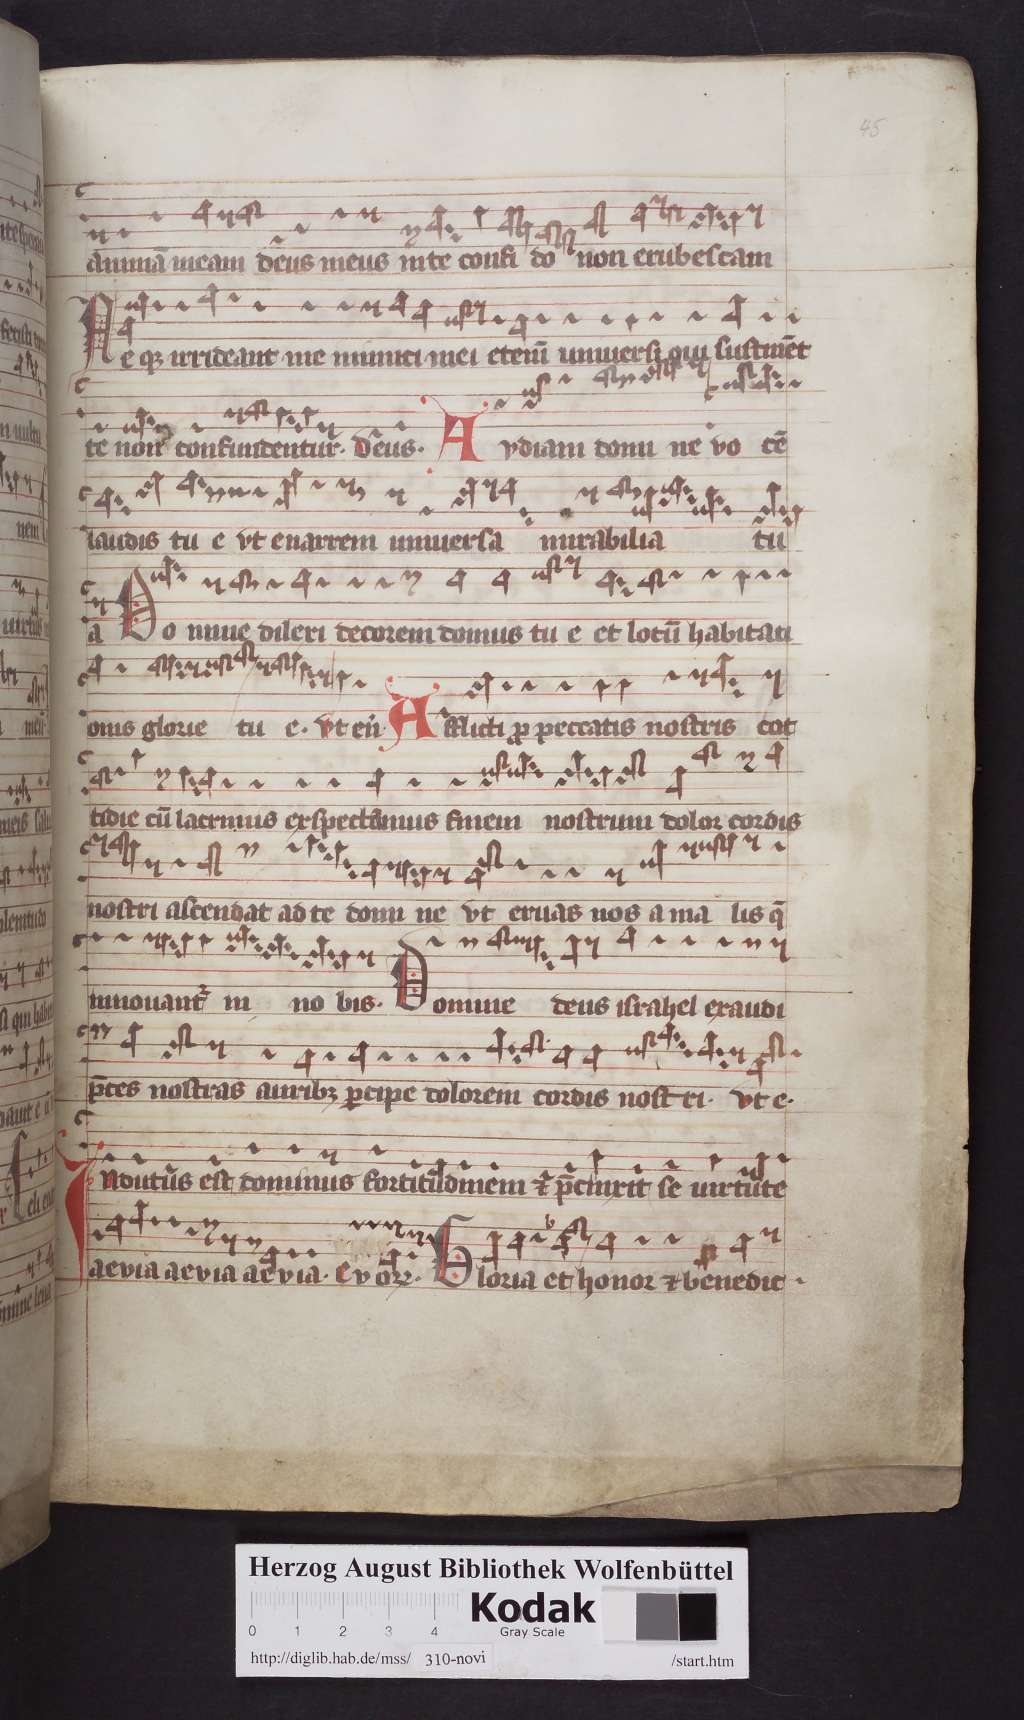 45
animā meam deus meus in te confi do non erubescam
Ne qȝ irrideant me inimici mei eteniͫ uniuersi qui sustinēt
te non confundentur. Deus. Avdiam domi ne vo cē
laudis tu e vt enarrem uniuersa mirabilia tu
a Do mine dilexi decorem domus tu e et locū habitati
onis glorie tu e. vt en̄. Afflicti ꝓ peccatis nostris cot
tidie cū lacrimis exspectamus finem nostrum dolor cordis
nostri ascendat ad te domi ne vt eruas nos a ma lis q̄
innouant᷑ in no bis. Domine deus israhel exaudi
p̄ces nostras auribȝ ꝑcipe dolorem cordis nost ri. vt e.
Indutus est dominus fortitudinem ⁊ p̄cinxit se uirtute
aevia aevia aevia. Evovȩ. Gloria et honor ⁊ benedic
Herzog August Bibliothek Wolfenbüttel
0 1 2 3 4
Kodak
Gray Scale
http://diglib.hab.de/mss/ 310-novi /start.htm